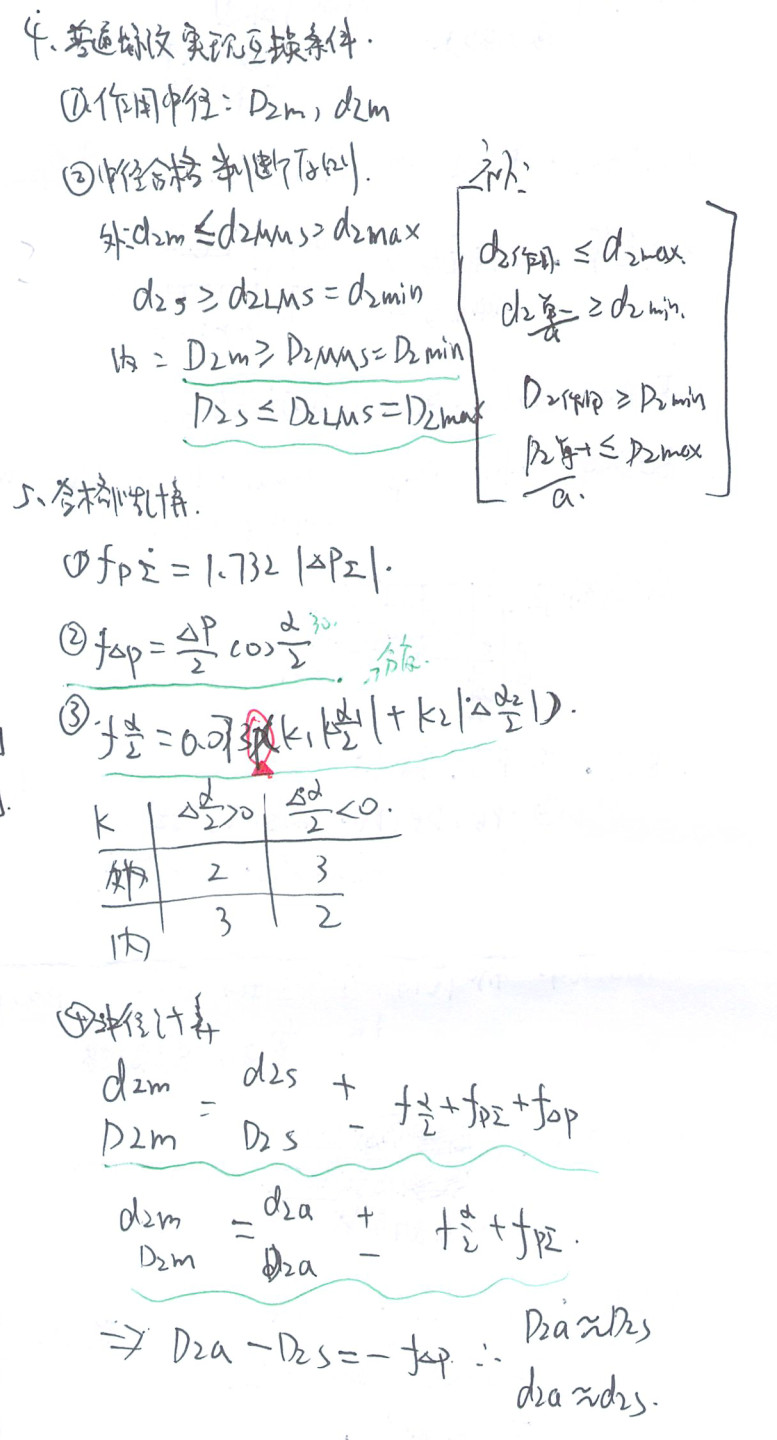 4、普通螺纹实现互换条件.
①作用中径: D2m, d2m
②中径合格判断原则.
外: d2m ≤ d2MMS = d2max
d2s ≥ d2LMS = d2min
内: D2m ≥ D2MMS = D2min
D2s ≤ D2LMS = D2max
补:
d2作用 ≤ d2max.
d2单一 ≥ d2min.
a
D2作用 ≥ D2min
D2单一 ≤ D2max
a.
5、合格性计算.
① fpΣ = 1.732 |ΔPΣ|.
② fΔp = ΔP/2 cos α/2 30.
③ f α/2 = 0.073P(k1|Δα1/2| + k2|Δα2/2|).
K | Δα/2>0 | Δα/2<0.
外 | 2 | 3
内 | 3 | 2
④中径计算
d2m = d2s + f α/2 + fpΣ + fΔp
D2m D2s -
d2m = d2a + f α/2 + fpΣ.
D2m D2a -
⇒ D2a - D2s = - fΔp. ∴ D2a ≈ D2s
d2a ≈ d2s.